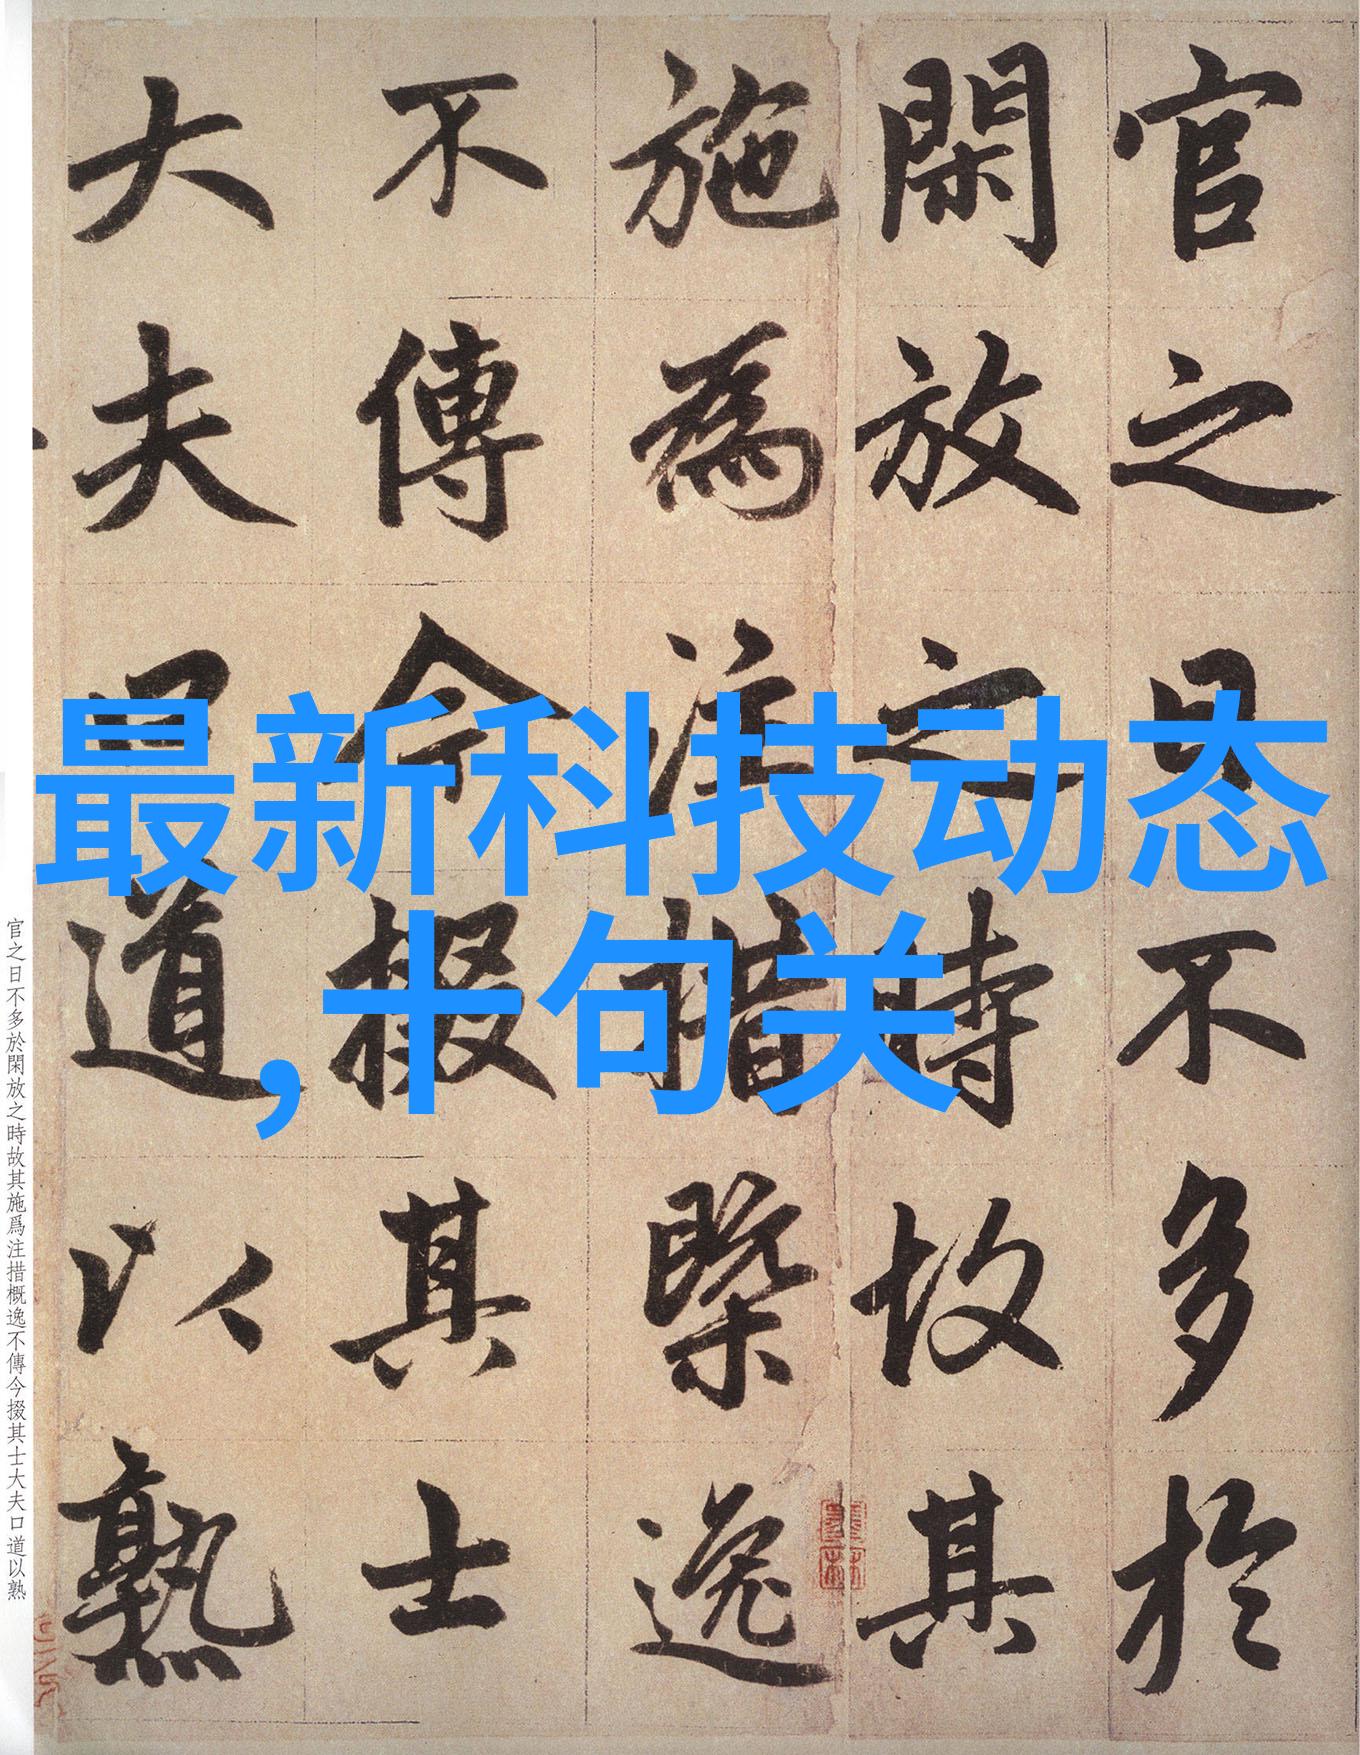 官之日不多於
閑放之時故其
施為注措槩逸
不傳今掇其士
大夫口道以熟
最新科技动态
,十句关
官之日不多於閑放之時故其施爲注措概逸不傳今掇其士大夫口道以熟